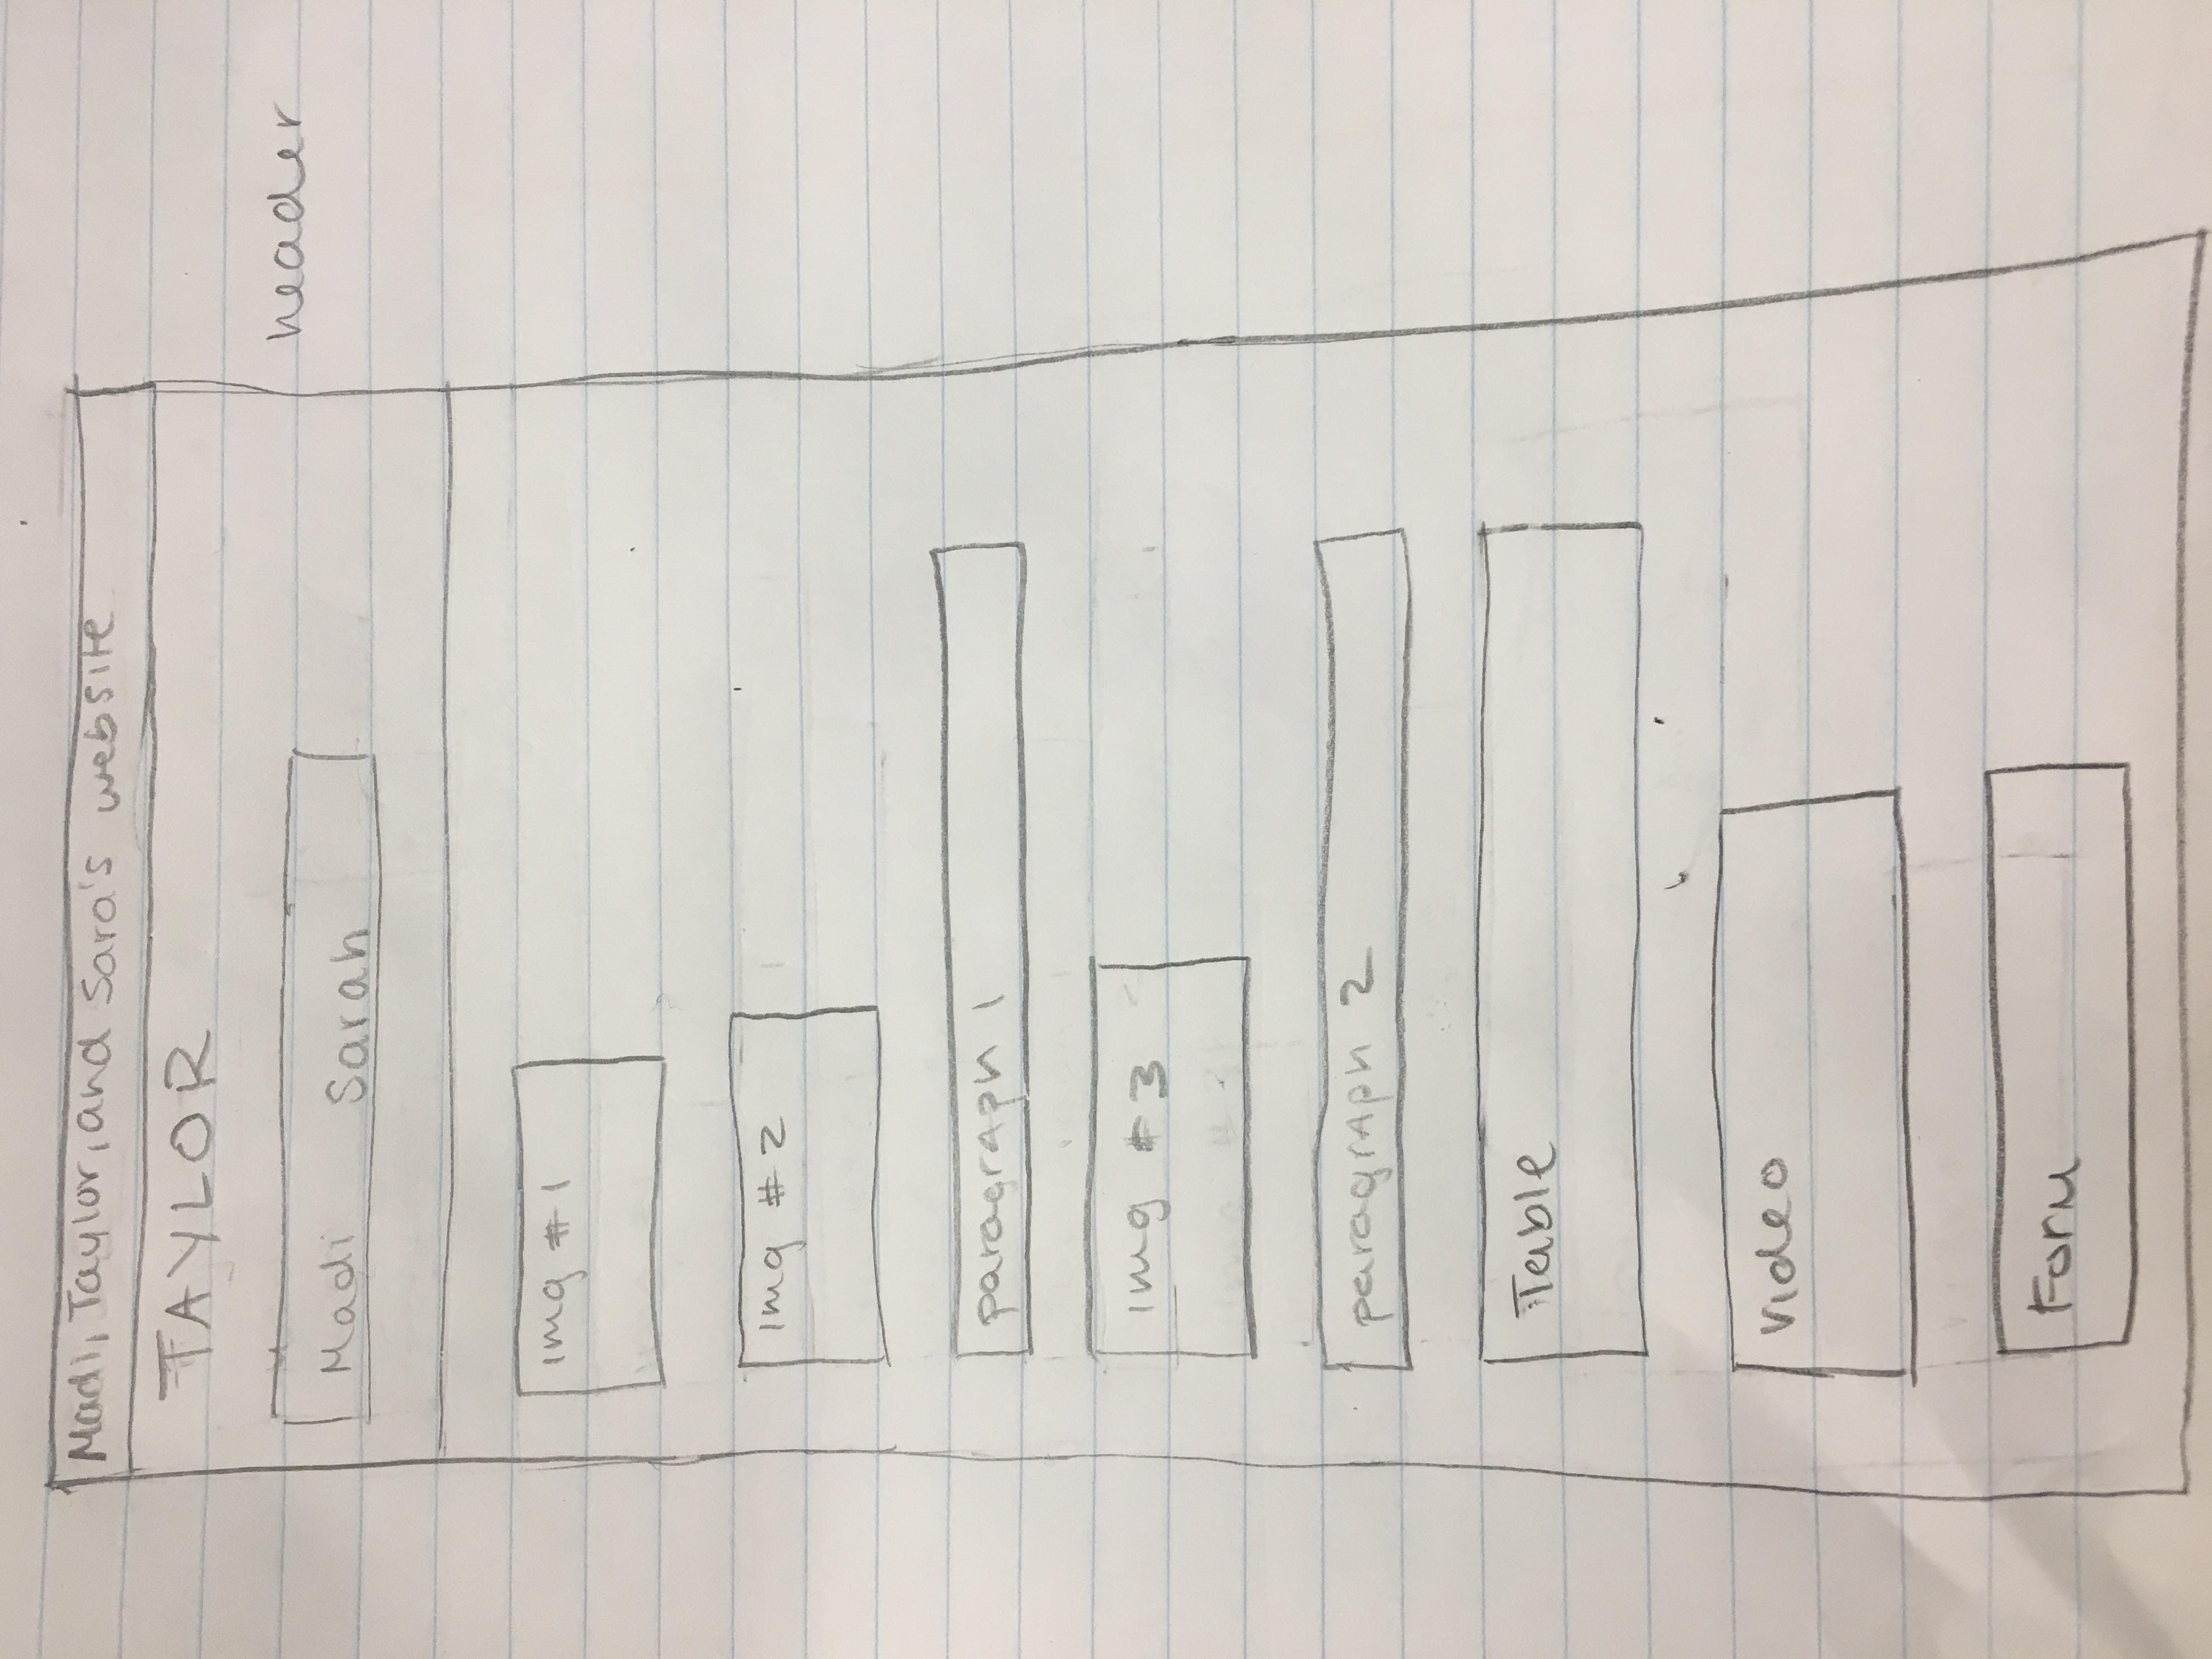 Madi, Taylor, and Sara's website
TAYLOR
header
Madi Sarah
img #1
img #2
paragraph 1
img #3
paragraph 2
Table
Video
Form